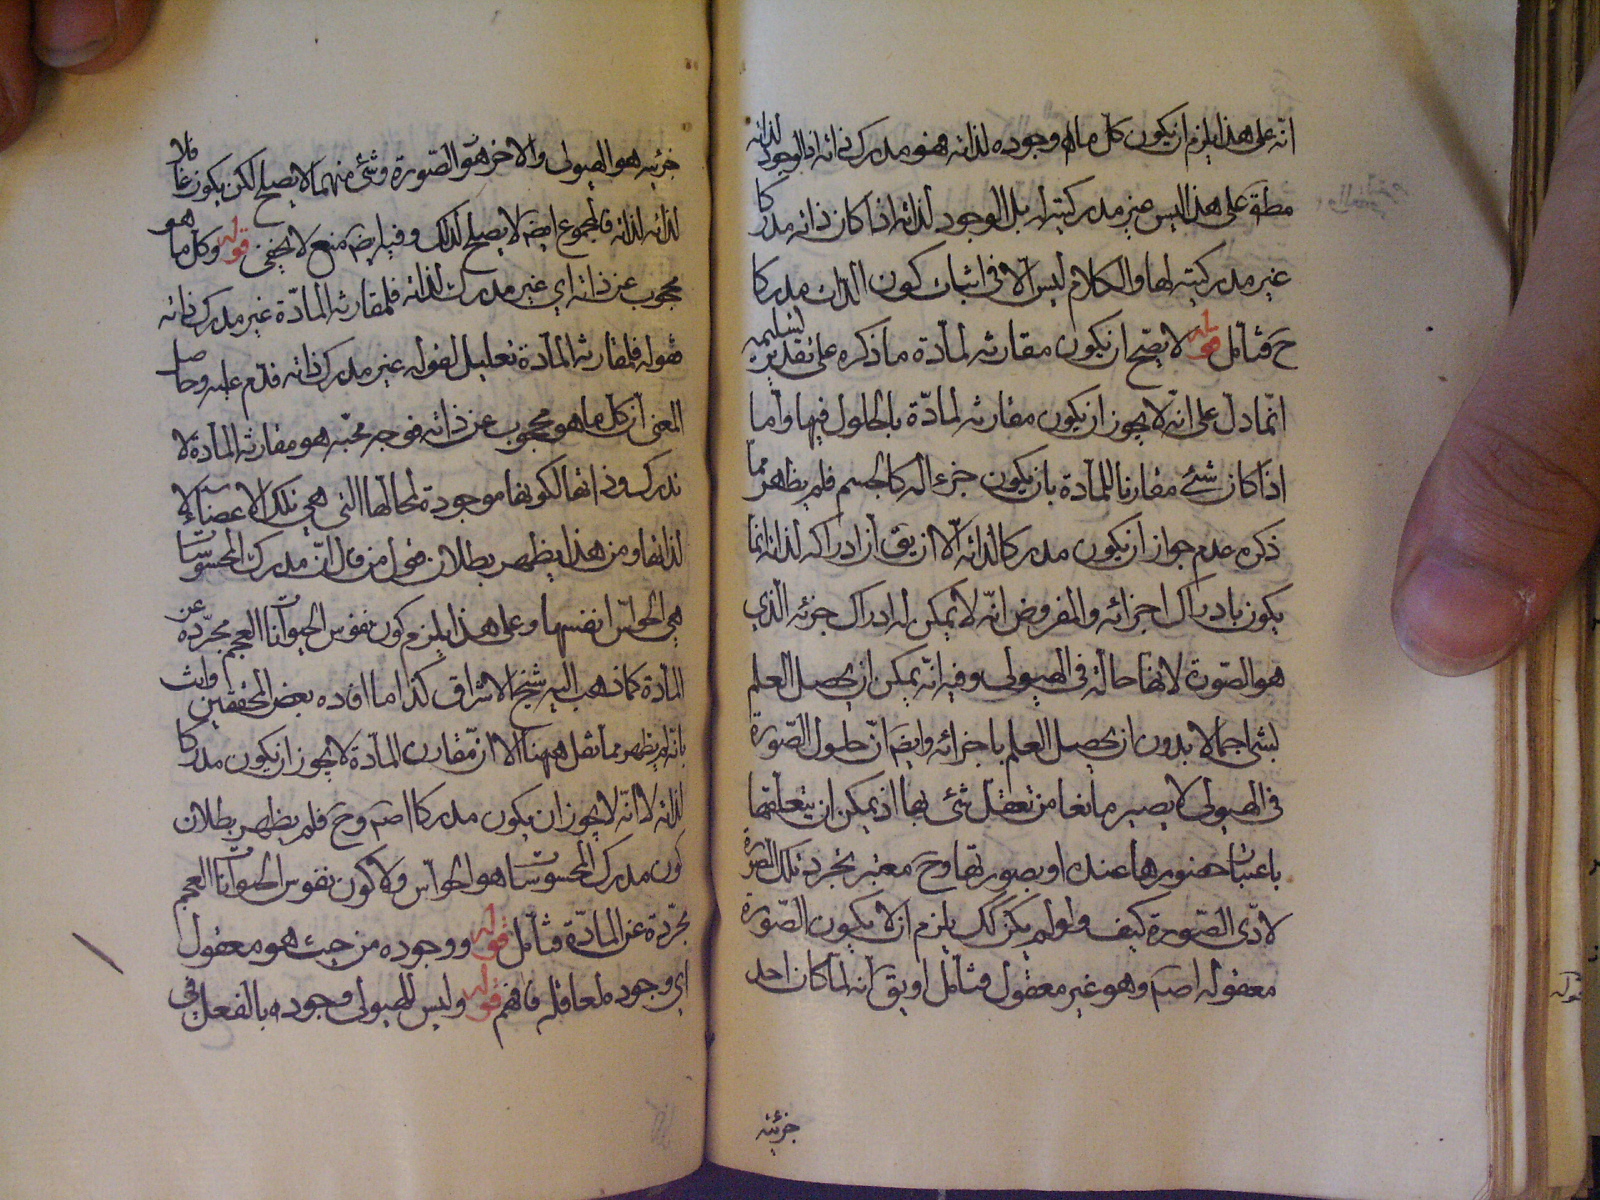 انّه على هذا يلزم ان يكون كل ما هو وجوده لذاته فهو مدرك ذاته اذ الوجود لذاته
مطلقا على هذا ليس غير مدركيته له بل الوجود لذاته اذا كان ذاته مدركا
غير مدركيته لها والكلام ليس الا في اثبات كون الذات مدركا
ح فتأمل قوله لا يصح ان يكون مقارنه لمادة ما ذكره على تقدير تسليمه
انّما دل على انّه لا يجوز ان يكون مقارنه لمادّة بالحلول فيها وأما
اذا كان شئ مقارنا للمادة بان يكون جزء اله كالجسم فلم يظهر مما
ذكره عدم جواز ان يكون مدركا لذاته الّا ان يق ان ادراكه لذاته انما
يكون بادراك اجزائه والمفروض انّه لا يمكن له ادراك جزئه الذي
هو الصّورة لانها حالة في الهيولى وفيه انّه يمكن ان يحصل العلم
بشئ اجمالا بدون ان يحصل العلم باجزائه وايضا انّ حلول الصّورة
في الهيولى لا يصير مانعا من تعقل شئ بها اذ يمكن ان يتعلقها
باعتبار حضورها عنده او بصورتها وح معتبر تجرد تلك الصورة
لا ذى الصّورة كيف ولو لم يكن كك يلزم ان لا يكون الصّورة
معقوله اصم وهو غير معقول فتأمل او يق انه لما كان احد
جزئيه
جزئيه هو الهيولى والاخر هو الصّورة وشئ منهما لا يصلح لكن يكون عاقلا
لذاته لذاته فالمجموع ايضا لا يصلح لذلك وفيه ايضا منع لا يخفى قوله وكل ما هو
محجوب عن ذاته اي غير مدرك لذاته فلمقارنه المادّة غير مدرك ذاته
فقوله فلمقارنه المادة تعليل لقوله غير مدرك ذاته قدم عليه وحاصل
المعنى ان كل ما هو محجوب عن ذاته فوجه محجبه هو مقارنه المادة لا
تدرك ذواتها لكونها موجودة لمحالها التي هي تلك الاعضاء لا
لذاتها ومن هذا يظهر بطلان قول من قال انّ مدرك المحسوسات
هي الحواس انفسها وعلى هذا يلزم كون نفوس الحيوانات العجم مجرّدة عن
المادة كما ذهب اليه شيخ الاشراق كذا ما افاده بعض المحققين وانت
بانه لم يظهر مما نقل ههنا الا انّ مقارن المادة لا يجوز ان يكون مدركا
لذاته لا انّه لا يجوز ان يكون مدركا اصم وح فلم يظهر بطلان
كون مدرك المحسوسات هو الحواس ولا كون نفوس الحيوانات العجم
مجرّدة عن المادّة فتأمل قوله ووجوده من حيث هو معقول
اي وجوده لعاقله فافهم قوله وليس للهيولى وجوده بالفعل في